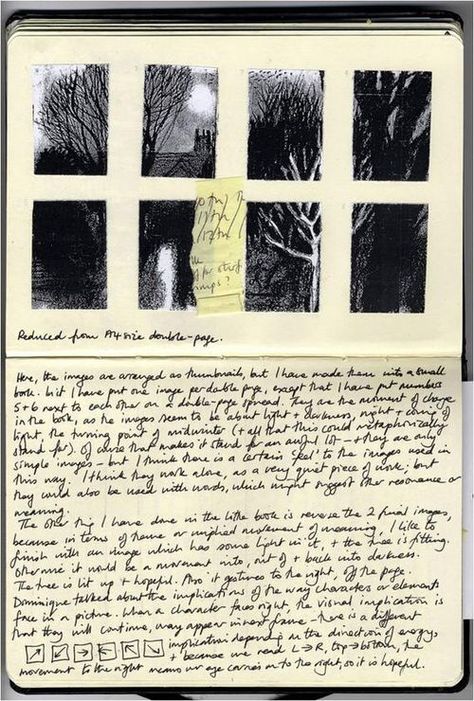 Reduced from A4 size double-page.
Here, the images are arranged as thumbnails, but I have made them into a small
book. In it I have put one image per double page, except that I have put numbers
5+6 next to each other on a double-page spread. They are the moment of change
in the book, as the images seem to be about light + darkness, night + coming of
light, the turning point of midwinter (+ all that this could metaphorically
stand for). Of course that makes it stand for an awful lot - + they are only
simple images - but I think there is a certain 'feel' to the images used in
this way. I think they work alone, as a very quiet piece of work; but
they could also be used with words, which might suggest other resonance or
meaning.
The other thing I have done in the little book is reverse the 2 final images,
because in terms of frame or implied movement of meaning, I like to
finish with an image which has some light in it, + the tree is fitting.
Otherwise it would be a movement into, out of + back into darkness.
The tree is lit up + hopeful. Also it gestures to the right, off the page.
Dominique talked about the implications of the way characters or elements
face in a picture. When a character faces right, the visual implication is
that they will continue, may appear in next frame - there is a different
implication depending on the direction of energy,
+ because we read L→R, top→bottom, the
movement to the right means our eye carries on to the right, so it is hopeful.